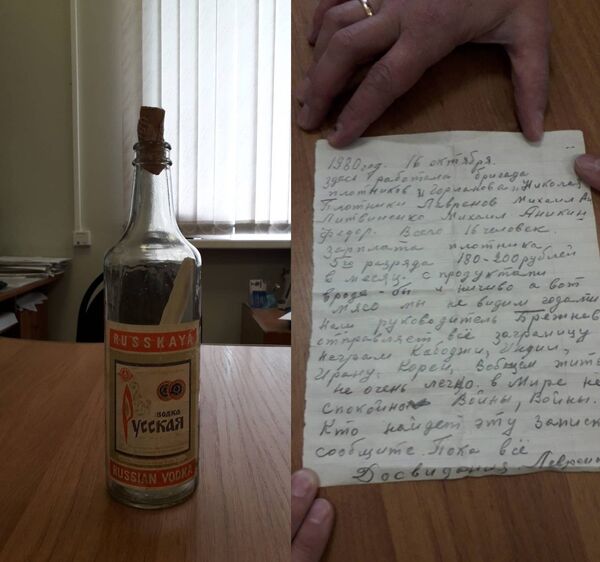 RUSSKAYA
водка
Русская
RUSSIAN VODKA
1980 год. 16 октября.
здесь работала бригада
плотников Горланова Николая
Плотники Лавранов Михаил
Литвиненко Михаил Аникин
федор. Всего 16 человек.
Зарплата плотника
5го разряда 180-200 рублей
в месяц. с продуктами
вроде-бы и ничиво а вот
мясо мы не видим годами
Нам руководитель Брежнев
отправляет всё заграницу
Неграм Кабоджи, Индии,
Ирану. Кореи, вобщем жить
не очень легко. в Мире не
спокойно Войны, Войны.
Кто найдет эту Записк
сообщите. Пока всё
Досвидания